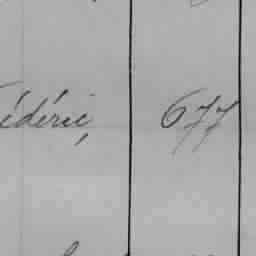 édéric, 677